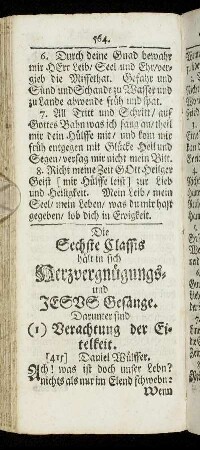 564.
6. Durch deine Gnad bewahr
mir HErr Leib/ Seel und Ehr/ver-
gieb die Missethat. Gefahr und
Sünd und Schande zu Wasser und
zu Lande abwende früh und spat.
7. All Tritt und Schritt/ auf
Gottes Bahn was ich fang an/ theil
mir dein Hülffe mit/ und kom mir
früh entgegen mit Glücke Heil und
Segen/ versag mir nicht mein Bitt.
8. Richt meine Zeit GOtt Heilger
Geist [mir Hülffe leist] zur Lieb
und Heiligkeit. Mein Leib/ mein
Seel/ mein Leben/ was du mir hast
gegeben/ lob dich in Ewigkeit.
Die
Sechste Classis
hält in sich
Herzvergnügungs-
und
JESUS Gesänge.
Darunter sind
(1) Verachtung der Ei-
telkeit.
[415] Daniel Wülffer.
Ach! was ist doch unser Lebn?
nichts als nur im Elend schwebn:
Wenn